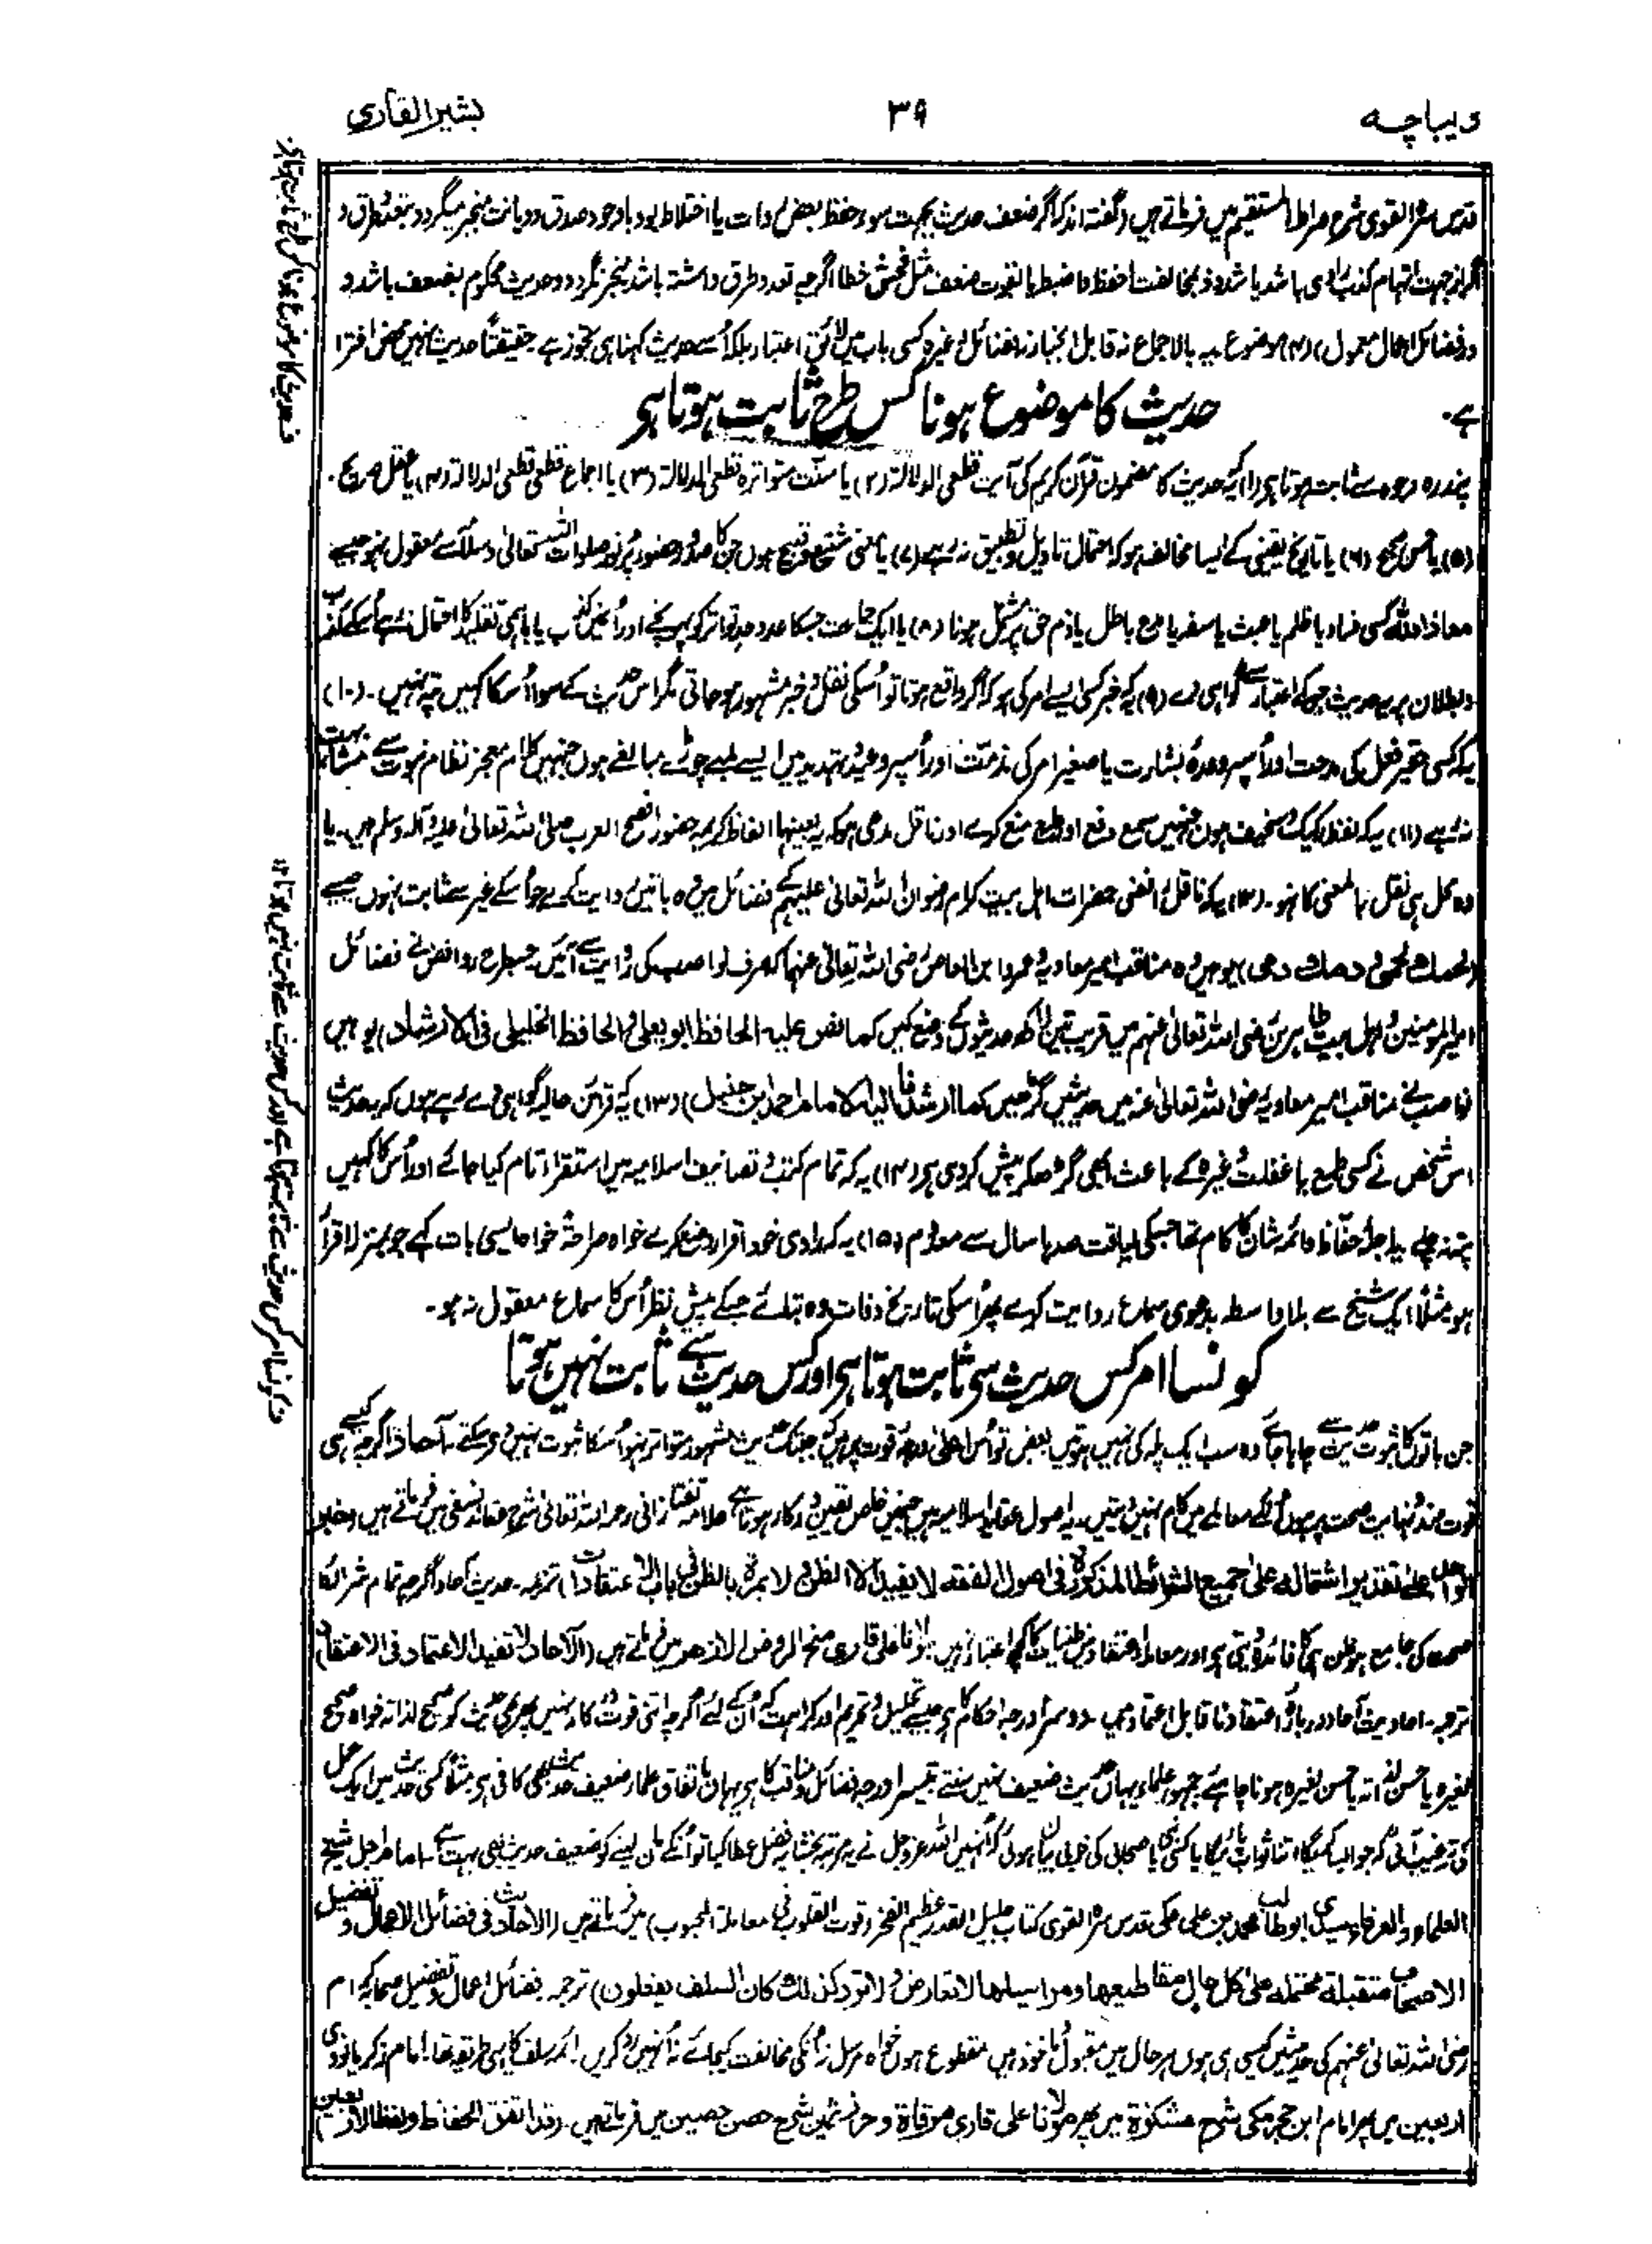 دیباچہ
۳۹
بشیر القاری
قدس سرہ القوی شرح صراط المستقیم میں فرماتے ہیں (گفتہ اند کہ اگر ضعف حدیث بجہت سوء حفظ بعض رواۃ یا اختلاط بود باوجود صدق و دیانت منجبر میگردد بتعدد طرق و
اگر از جہت اتہام کذب راوی باشد یا شذوذ بمخالفت احفظ و اضبط یا بقوت ضعف مثل فحش خطا اگرچہ تعدد طرق داشتہ باشد منجبر نگردد و حدیث محکوم بضعف باشد و
در فضائل اعمال معمول) (۳) موضوع یہ بالاجماع نہ قابل انجبار نہ فضائل وغیرہ کسی باب میں لائق اعتبار بلکہ اُسے حدیث کہنا ہی تجوز ہے حقیقتاً حدیث نہیں محض افترا
ہے۔
حدیث کا موضوع ہونا کس طرح ثابت ہوتا ہی
پندرہ وجوہ سے ثابت ہوتا ہی (۱) یہ کہ حدیث کا مضمون قرآن کریم کی آیت قطعی الدلالۃ (۲) یا سنّت متواترہ قطعی الدلالۃ (۳) یا اجماع قطعی قطعی الدلالۃ (۴) یا عقل صریح۔
(۵) یا حس صحیح (۶) یا تاریخ یقینی کے ایسا مخالف ہو کہ احتمال تاویل و تطبیق نہ رہے (۷) یا معنی شنیع و قبیح ہوں جن کا صدور حضور پُرنور صلوات اللہ تعالیٰ وسلامہٗ سے معقول نہو جیسے
معاذ اللہ کسی فساد یا ظلم یا عبث یا سفہ یا مدح باطل یا ذم حق پر مشتمل ہونا (۸) یا ایک جماعت جسکا عدد حد تواتر کو پہونچے اور اُنمیں کذب یا باہمی تقلید کا احتمال نہ رہے اُسکے کذب
و بطلان پر گواہی دے (۹) یہ کہ خبر کسی ایسے امر کی ہو کہ اگر واقع ہوتا تو اُسکی نقل و خبر مشہور ہو جاتی مگر اس حدیث کے سوا اُسکا کہیں پتہ نہیں۔ (۱۰)
یہ کہ کسی حقیر فعل کی مدحت اور اُسپر وعدہ و بشارت یا صغیر امر کی مذمّت اور اُسپر وعید و تہدید میں ایسے لمبے چوڑے مبالغے ہوں جنہیں کلام معجز نظام نبوت سے مشابہت
نہ رہے (۱۱) یہ کہ لفظ رکیک و سخیف ہوں جنہیں سمع دفع اور طبع منع کرے اور ناقل مدعی ہو کہ یہ بعینہا الفاظ کریمہ حضور افصح العرب صلی اللہ تعالیٰ علیہ وآلہ وسلم ہیں۔ یا
وہ محل ہی نقل بالمعنی کا نہو۔ (۱۲) یہ کہ ناقل رافضی حضرات اہل بیت کرام رضوان اللہ تعالیٰ علیہم کے فضائل میں وہ باتیں روایت کرے جو اُسکے غیر سے ثابت نہوں جیسے
(لحمك لحمی و دمك دمی) یوہیں وہ مناقب امیر معاویہ و عمرو ابن العاص رضی اللہ تعالیٰ عنہما کہ صرف نواصب کی روایت سے آئیں۔ جسطرح روافض نے فضائل
امیر المومنین و اہل بیت طاہرین رضی اللہ تعالیٰ عنہم میں قریب تین لاکھ حدیثوں کے وضع کیں کما نص علیہ الحافظ ابو یعلی والحافظ الخلیلی فی الارشاد) یوہیں
نواصب نے مناقب امیر معاویہ رضی اللہ تعالیٰ عنہ میں حدیثیں گڑھیں کما ارشد الیہ الامام احمد بن حنبل) (۱۳) یہ کہ قرائن حالیہ گواہی دے رہے ہوں کہ یہ حدیث
اس شخص نے کسی طمع یا غفلت وغیرہ کے باعث ابھی گڑھ کر پیش کر دی ہی (۱۴) یہ کہ تمام کتب و تصانیف اسلامیہ میں استقراء تام کیا جائے اور اُس کا کہیں
پتہ نہ چلے یہ اجلہ حفاظ و ائمہ شان کا کام تھا جسکی لیاقت صدہا سال سے معدوم (۱۵) یہ کہ راوی خود اقرار وضع کرے خواہ صراحۃً خواہ ایسی بات کہے جو بمنزلہ اقرار
ہو مثلاً ایک شیخ سے بلا واسطہ بدعوی سماع روایت کرے پھر اُسکی تاریخ وفات وہ بتلائے جسکے پیش نظر اُس کا سماع معقول نہ ہو۔
کونسا امر کس حدیث سی ثابت ہوتا ہی اور کس حدیث سے ثابت نہیں ہوتا
جن باتوں کا ثبوت حدیث سے چاہا جائے وہ سب ایک پلہ کی نہیں ہوتیں بعض تو اُس اعلیٰ درجہ قوت پر ہیں کہ جبتک حدیث مشہور متواتر نہو اُسکا ثبوت نہیں دے سکتے۔ آحاد اگرچہ کیسے ہی
قوت سند و نہایت صحت پر ہوں اُنکے معاملے میں کام نہیں دیتیں۔ یہ اصول عقاید اسلامیہ ہیں جنمیں خاص یقین درکار ہوتا ہے علامہ تفتازانی رحمہ اللہ تعالیٰ شرح عقائد نسفی میں فرماتے ہیں (خبر
الواحد علیٰ تقدیر اشتمالہ علیٰ جمیع الشرائط المذکورۃ فی اصول الفقہ لا یفید الا الظن ولا عبرۃ بالظن فی باب الاعتقادات) ترجمہ۔ حدیث آحاد اگرچہ تمام شرائط
صحت کی جامع ہو ظن ہی کا فائدہ دیتی ہی اور معاملہ اعتقاد میں ظنیات کا کچھ اعتبار نہیں۔ مولانا علی قاری منح الروض الازہر میں فرماتے ہیں (الآحاد لا تفید الاعتماد فی الاعتقاد)
ترجمہ۔ احادیث آحاد دربارۂ اعتقاد ناقابل اعتماد ہیں۔ دوسرا درجہ احکام ہی جیسے تحلیل و تحریم اور کراہت کہ اُن کے لئے اگرچہ اتنی قوت درکار نہیں پھر بھی حدیث کو صحیح لذاتہ خواہ صحیح
لغیرہ یا حسن لذاتہ یا حسن لغیرہ ہونا چاہئے جمہور علماء یہاں حدیث ضعیف نہیں سنتے تیسرا درجہ فضائل و مناقب کا ہی یہاں باتفاق علماء ضعیف حدیث بھی کافی ہی مثلاً کسی حدیث میں ایک عمل
کی ترغیب آئی کہ جو ایسا کریگا اتنا ثواب پائیگا یا کسی نبی یا صحابی کی خوبی بیان ہوئی کہ اُنہیں اللہ عزوجل نے یہ مرتبہ بخشا یہ فضل عطا کیا تو اُنکے مان لینے کو ضعیف حدیث بھی بہت ہے۔ امام اجل شیخ
العلماء والعرفاء سیدی ابو طالب محمد بن علی مکی قدس سرہ القوی کتاب جلیل القدر عظیم الفخر (قوت القلوب فی معاملۃ المحبوب) میں فرماتے ہیں (الاحادیث فی فضائل الاعمال و تفضیل
الاصحاب متقبلۃ محتملہ علیٰ کل حال مقاطیعہا ومراسیلہا لا تعارض ولا ترد کذلك کان السلف یفعلون) ترجمہ۔ فضائل اعمال و تفضیل صحابہ کرام
رضی اللہ تعالیٰ عنہم کی حدیثیں کیسی ہی ہوں ہر حال میں مقبول و ماخوذ ہیں مقطوع ہوں خواہ مرسل نہ اُنکی مخالفت کیجائے نہ اُنہیں رد کریں۔ ائمہ سلف کا یہی طریقہ تھا۔ امام ذکریا نووی
اربعین میں پھر امام ابن حجر مکی شرح مشکوٰۃ میں پھر مولانا علی قاری مرقاۃ و حرز ثمین شرح حصن حصین میں فرماتے ہیں۔ (قد اتفق الحفاظ ولفظ الاربعین
ف حدیث کا موضوع ہونا کس طرح ثابت ہوتا ہی
ف کونسا امر کس حدیث سے ثابت ہوتا ہے اور کس حدیث سے ثابت نہیں ہوتا ۱۲